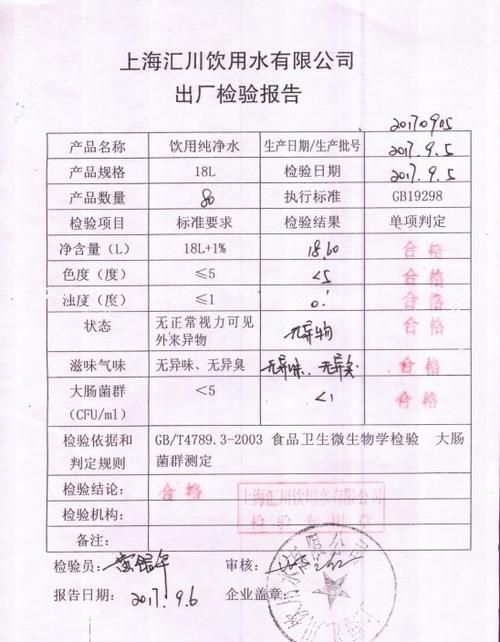 上海汇川饮用水有限公司
出厂检验报告
20170905
产品名称 饮用纯净水 生产日期/生产批号 2017.9.5
产品规格 18L 检验日期 2017.9.5
产品数量 80 执行标准 GB19298
检验项目 标准要求 检验结果 单项判定
净含量（L） 18L+1% 18.60 合格
色度（度） ≤5 <5 合格
浊度（度） ≤1 合格
状态 无正常视力可见外来异物 无异物 合格
滋味气味 无异味、无异臭 无异味、无异臭 合格
大肠菌群（CFU/ml） <5 <1 合格
检验依据和判定规则 GB/T4789.3-2003 食品卫生微生物学检验 大肠菌群测定
检验结论： 合格
上海汇川饮用水有限公司
检验专用章
检验机构：
备注：
检验员： 审核：
报告日期： 2017.9.6 企业盖章：